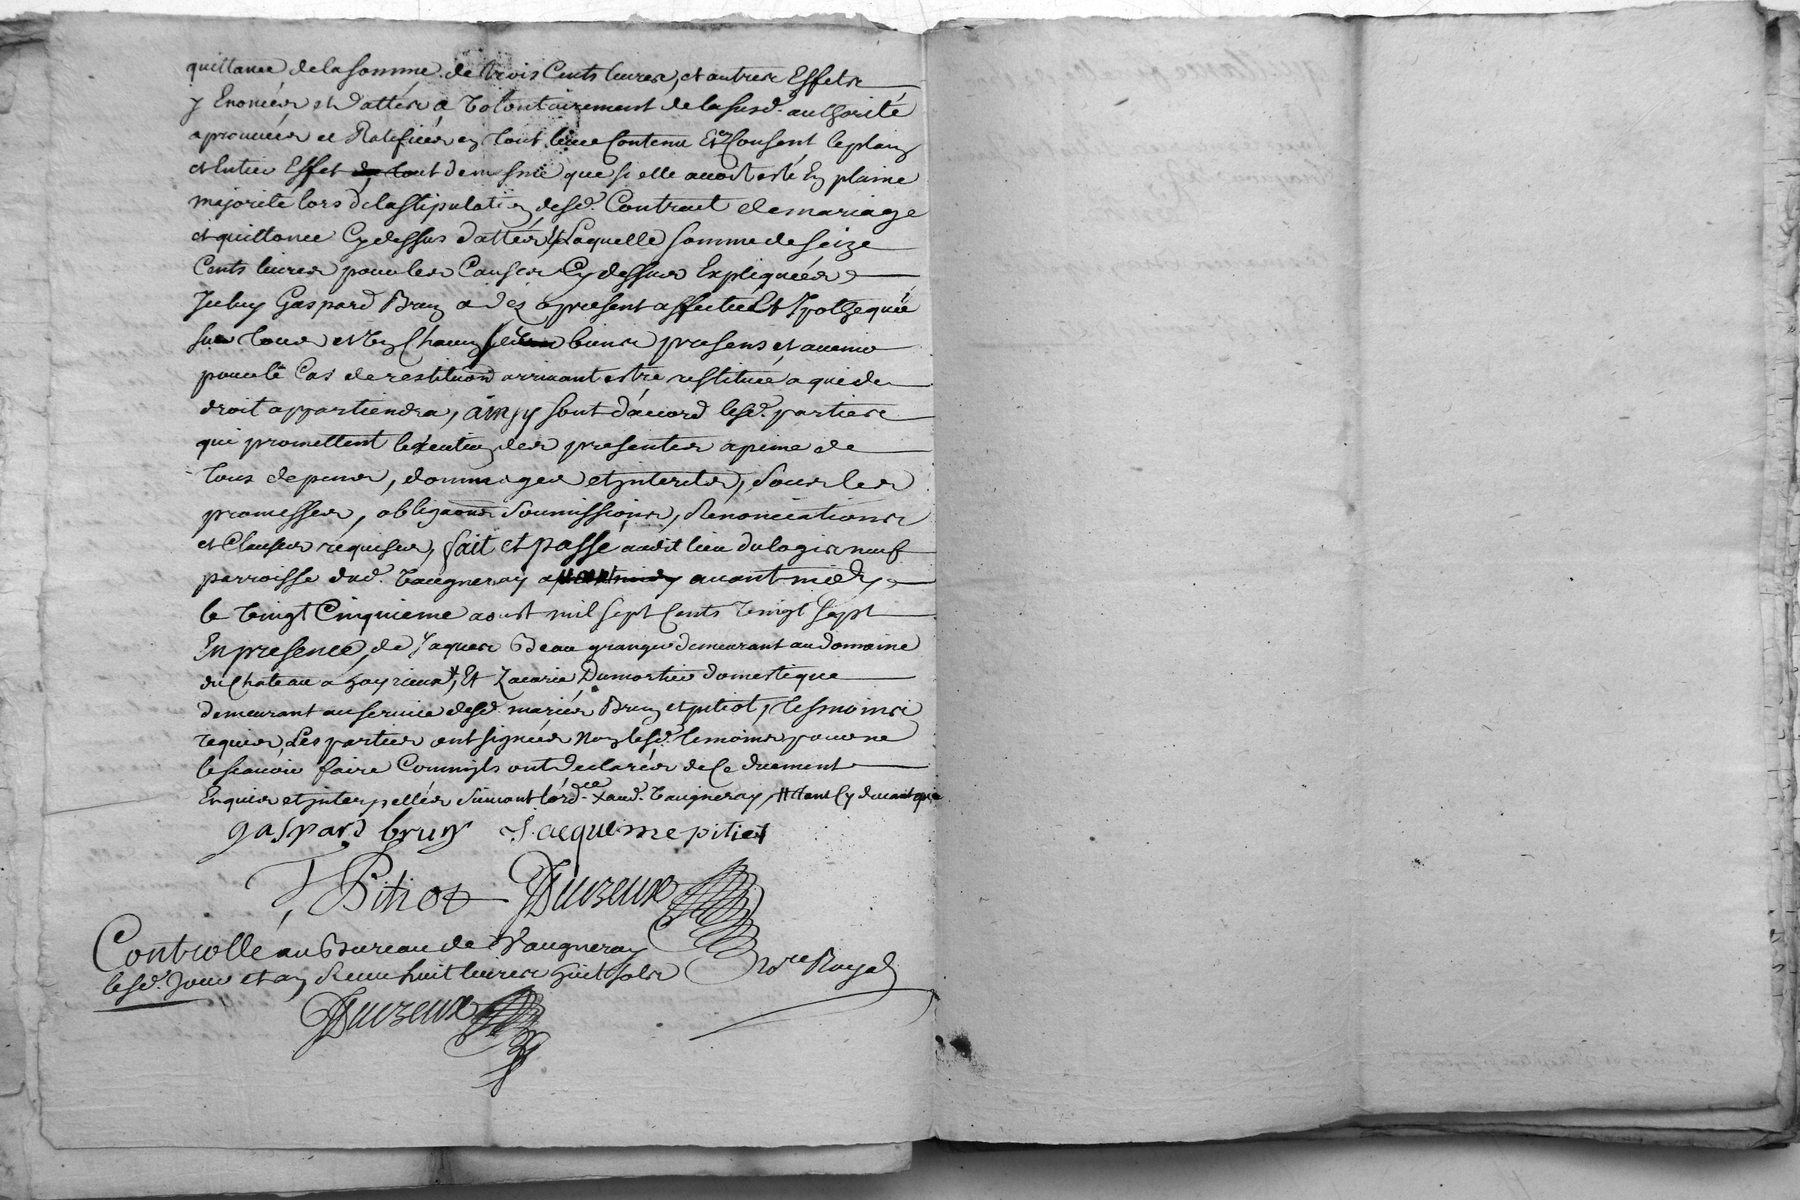 quittance de la somme de trois Cents livres, et autres Effets
y Enoncés et dattés a volontairement de la susd. authorité
aprouvés et Ratifiés en tout leur Contenu Et en Consent le plain
et Entier Effet de tout de mesme que si elle avoit esté En plaine
majorité lors de la stipulation desd. Contract de mariage
et quittance Cy dessus dattés, Laquelle somme de seize
Cents livres pour les Causes Cy dessus Expliquées
Iceluy Gaspard Brun a dés a present affecté Et Ipothequé
sur tous et un Chacun ses biens presens et avenir
pour le Cas de restituon arrivant estre restitué a qui de
droit appartiendra, ainsy sont d'accord lesd. parties
qui promettent l'exécution des presentes a peine de
tous depens, dommages et interets, sous les
promesses, obligaons soumissions, Renonciations
et Clauses requises, fait et passé audit lieu du logis neuf
parroisse dud. Vaugneray avant midy
le vingt Cinquieme aoust mil sept Cents vingt sept
En presence, de Jaques Beau granger demeurant au domaine
du Chateau a Et Zacarie Dumortier domestique
demeurant au service desd. mariés Brun et pitiot, tesmoins
requis, Les parties ont signées Non lesd. temoins pour ne
le sçavoir faire Comm'ils ont declarés de Ce duement
Enquis et interpellés suivant l'ord.ce aud. Vaugneray, Cy devant que
gaspard brun Jacqueme pitiot
Pitiot Duvzeux
Controllé au Bureau de Vaugneray
lesd. Jour et an Receu huit livres huit sols No.re Royal
Duvzeux